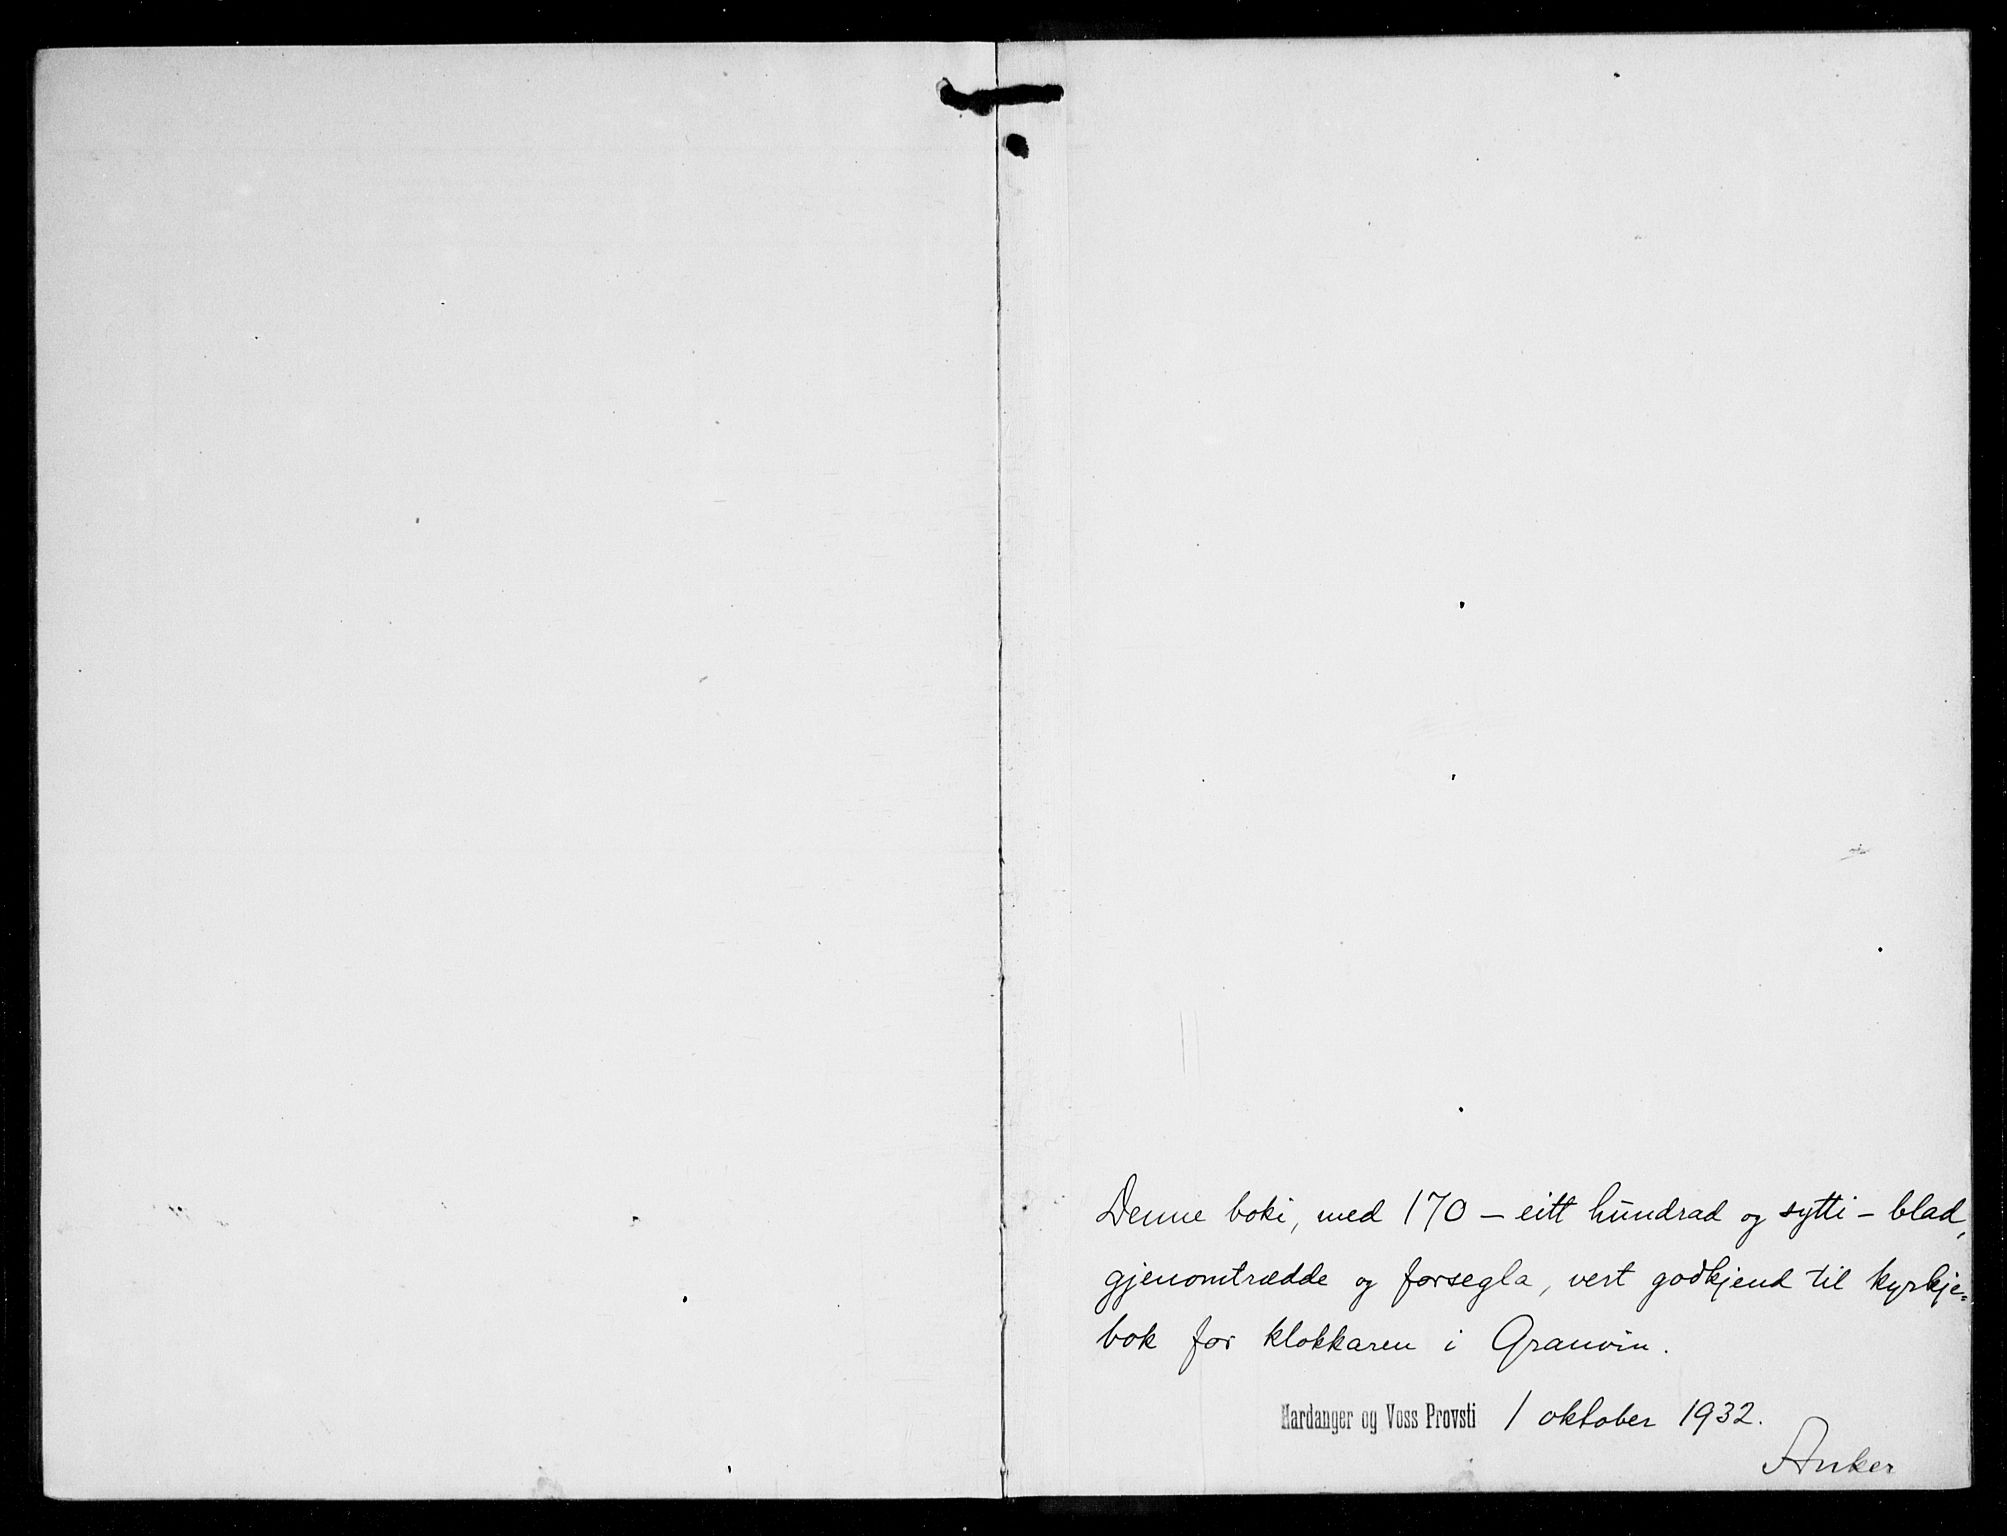 Denne boki, med 170 – eitt hundrad og sytti – blad,
gjenomtrædde og forsegla, vert godkjend til kyrkje=
bok for klokkaren i Granvin.
Hardanger og Voss Provsti 1 oktober 1932.
Anker